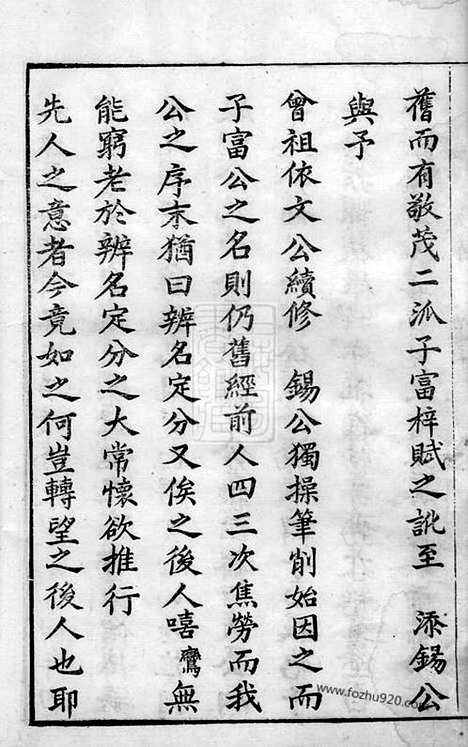 舊而有敬茂二派子富梓賦之訛至　添錫公
與予
曾祖依文公續修　錫公獨操筆削始因之而
子富公之名則仍舊經前人四三次焦勞而我
公之序末猶曰辨名定分又俟之後人嘻鸞無
能窮老於辨名定分之大常懷欲推行
先人之意者今竟如之何豈轉望之後人也耶
www.fozhu920.com